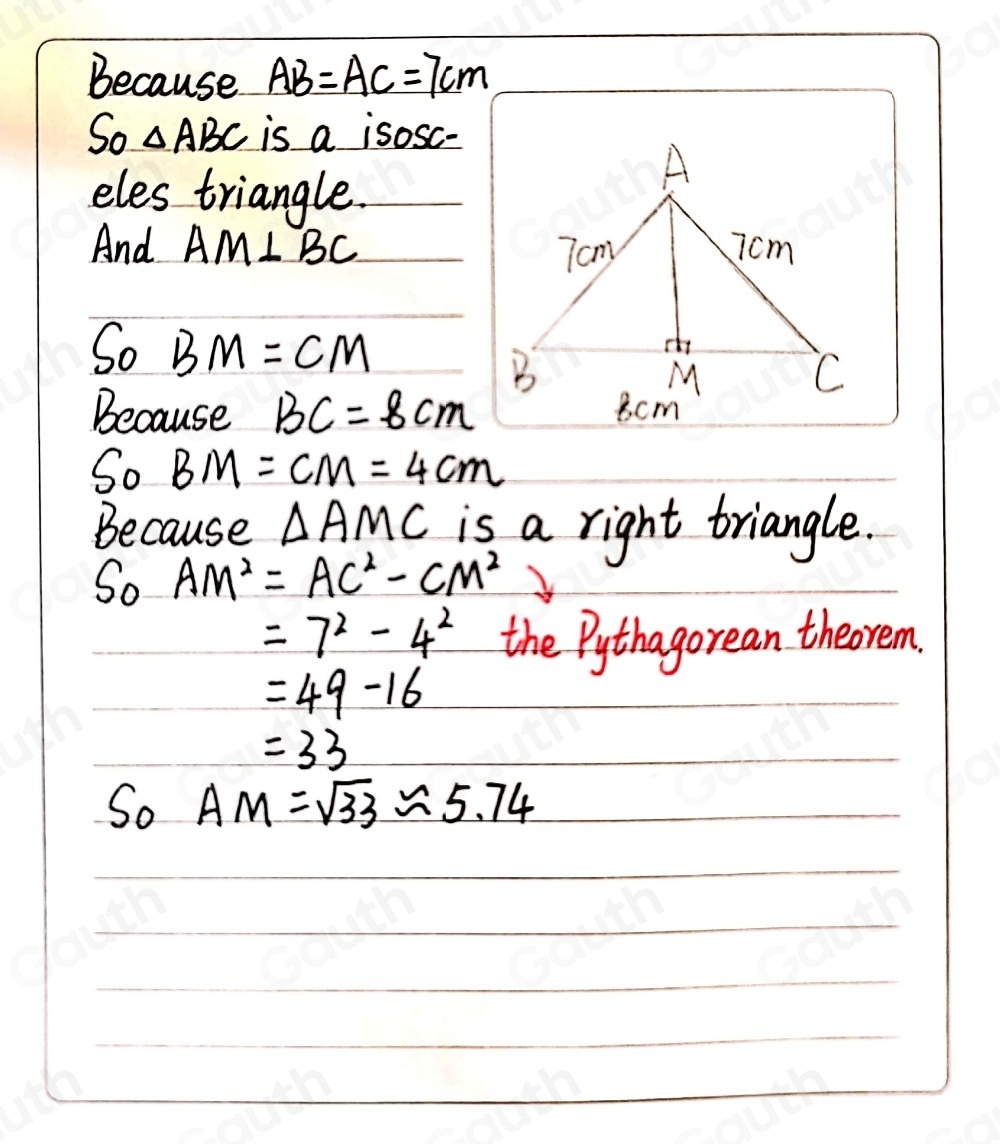 Because AB=AC=7cm
So △ABC is a isosc-
eles triangle.
And AM⊥BC
So BM=CM
Because BC=8cm
So BM=CM=4cm
Because △AMC is a right triangle.
So AM²=AC²-CM²
=7²-4² the Pythagorean theorem.
=49-16
=33
So AM=√33≈5.74
A
7cm 7cm
B M C
8cm
Gauth